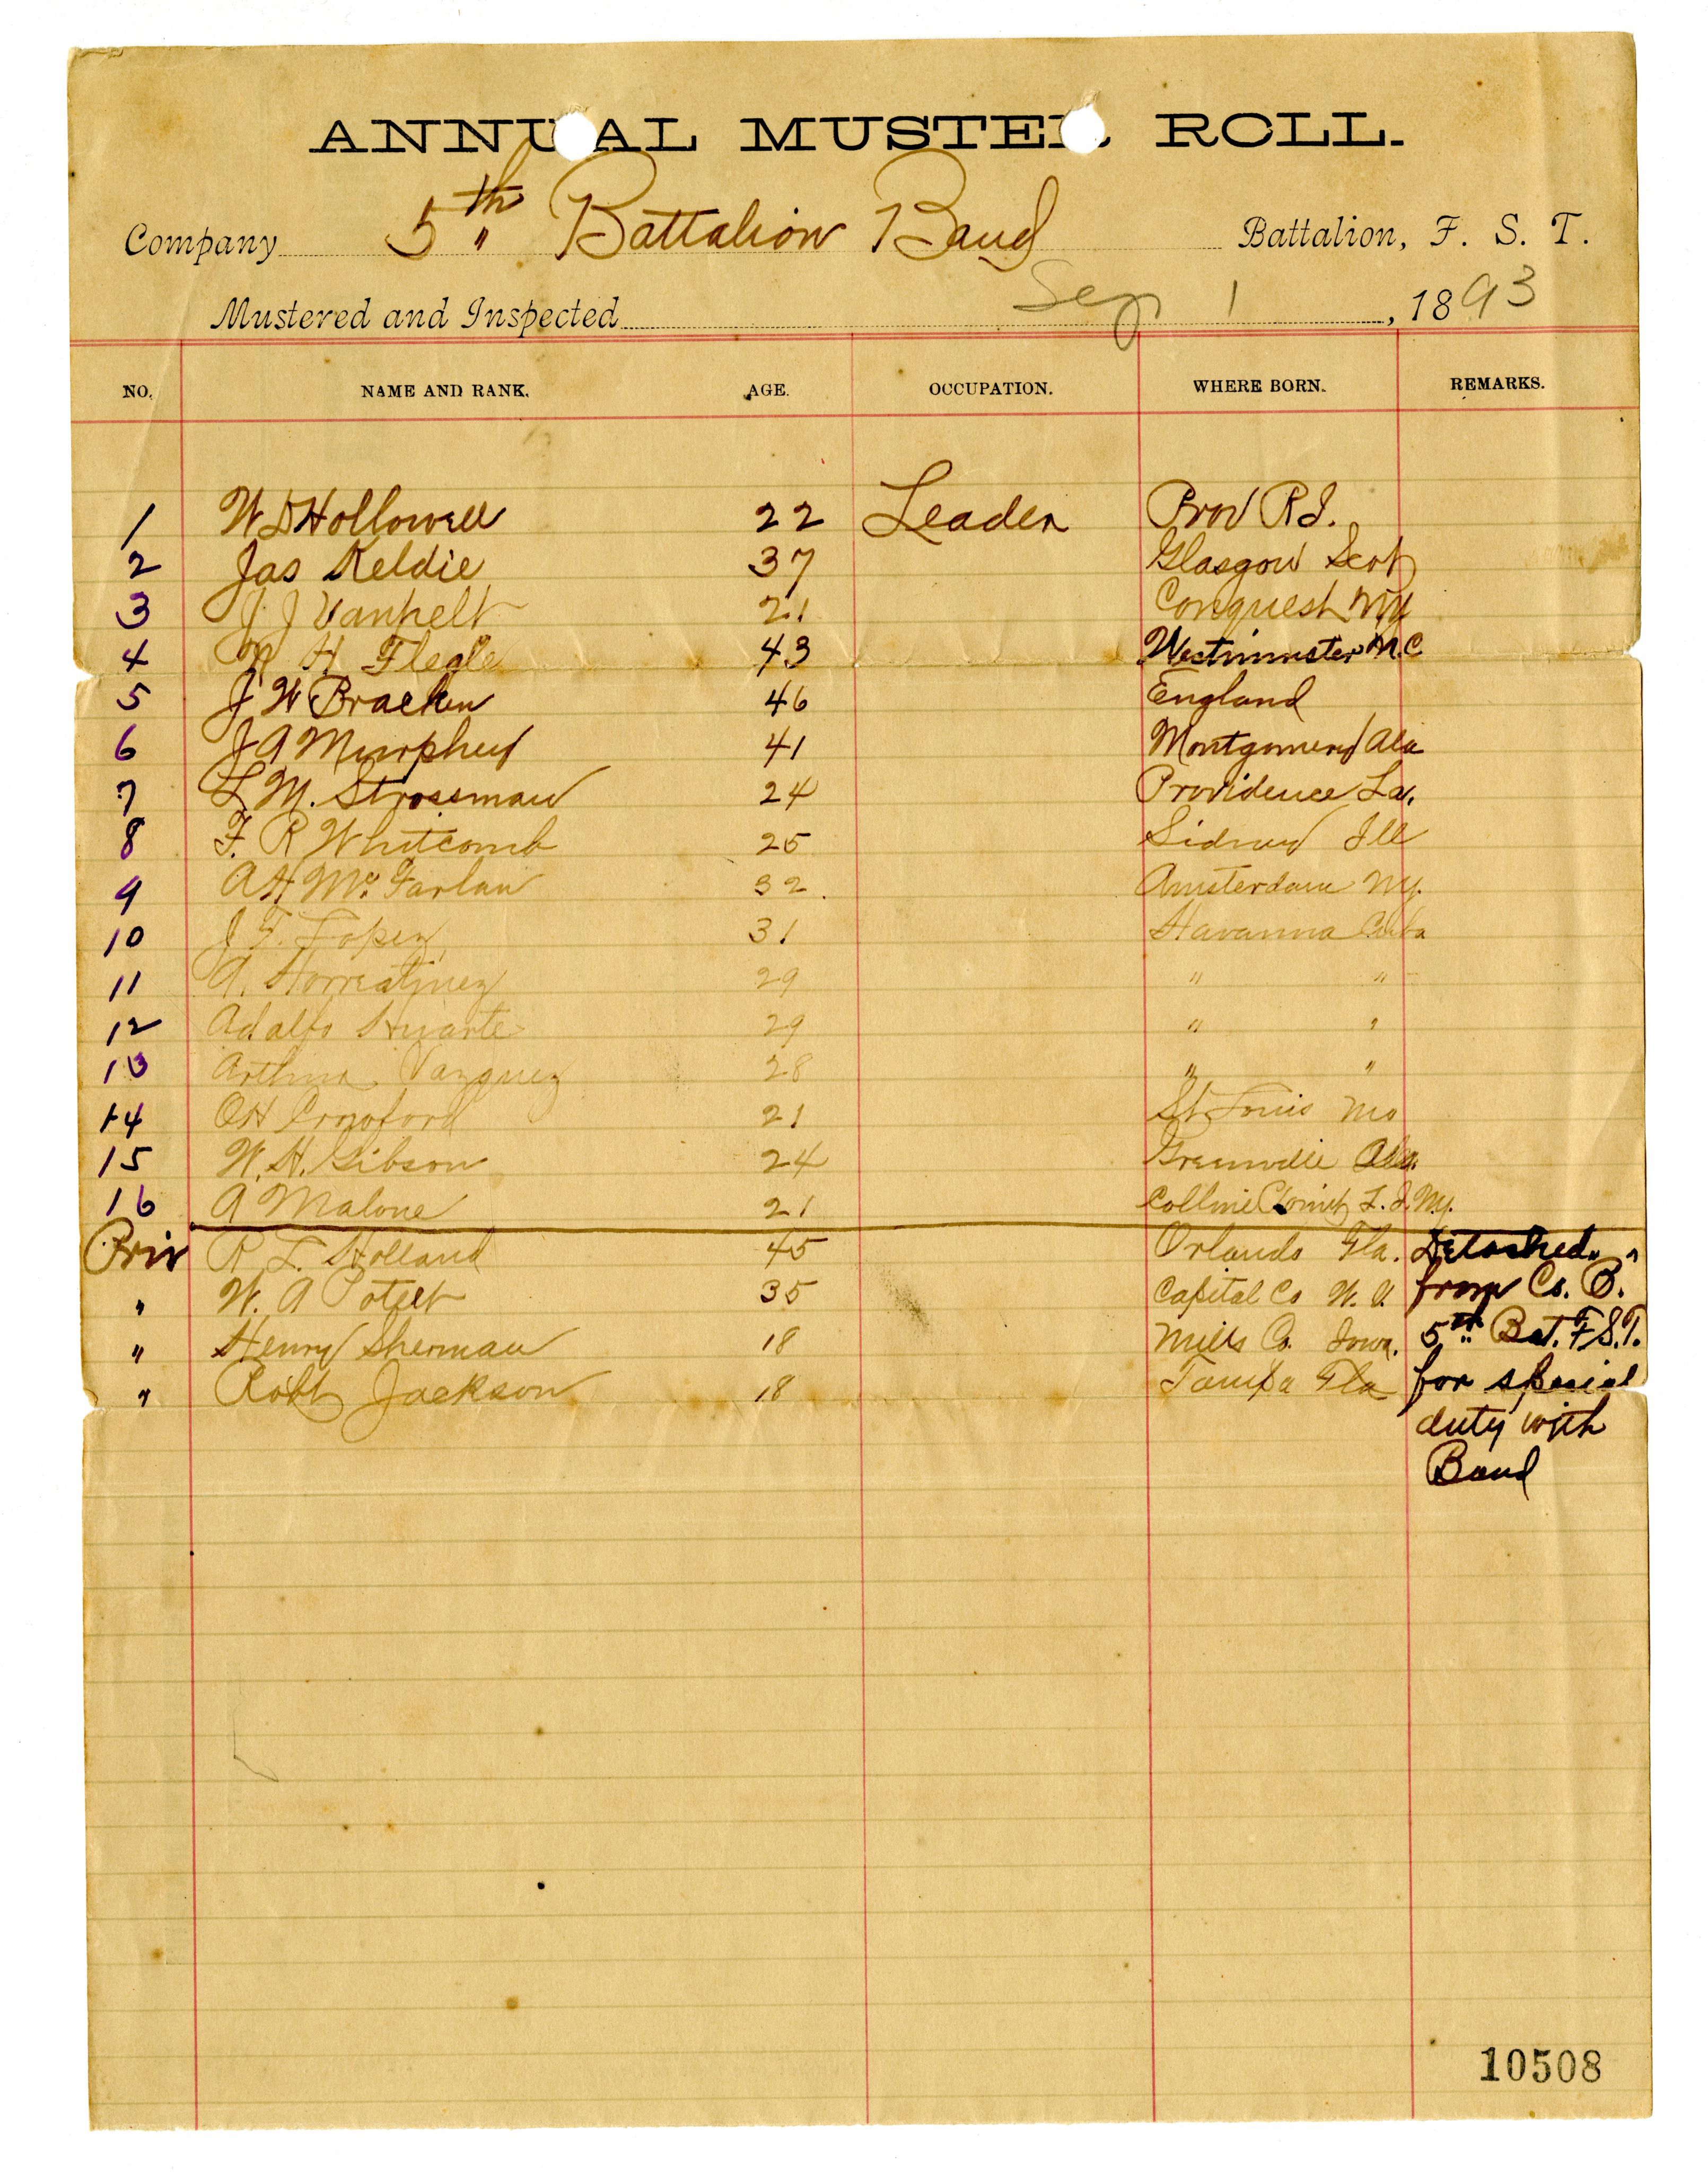 ANNUAL MUSTER ROLL.
Company 5th Battalion Band Battalion, F. S. T.
Mustered and Inspected Sep 1, 1893
NO. NAME AND RANK. AGE. OCCUPATION. WHERE BORN. REMARKS.
1 W D Hollowell 22 Leader Prov R I.
2 Jas Keldie 37 Glasgow Scot
3 J J Vanpelt 21 Conquest NY
4 H Flegle 43 Westminster
5 J W Bracken 46 England
6 J A Murphey 41 Montgomery Ala
7 L M. Strossman 24 Providence La.
8 F. R Whitcomb 25 Sidney Ill
9 A H Mc Farlan 32. Amsterdam NY.
10 J F. Lopez 31 Havanna Cuba
11 A. 29 " "
12 Adolfo 29 " "
13 Arthur Vazquez 28 " "
14 O H Crawford 21 St Louis Mo
15 W. H. Gibson 24 Greenville Ala.
16 A Malone 21 L. I. NY.
Priv R L. Holland 45 Orlando Fla. Detached
" W. A Poteet 35 Capital Co W. V. from Co. B.
" Henry Sherman 18 Mills Co. Iowa. 5th Bat. F S. T.
" Robt Jackson 18 Tampa Fla for special
duty with
Band
10508